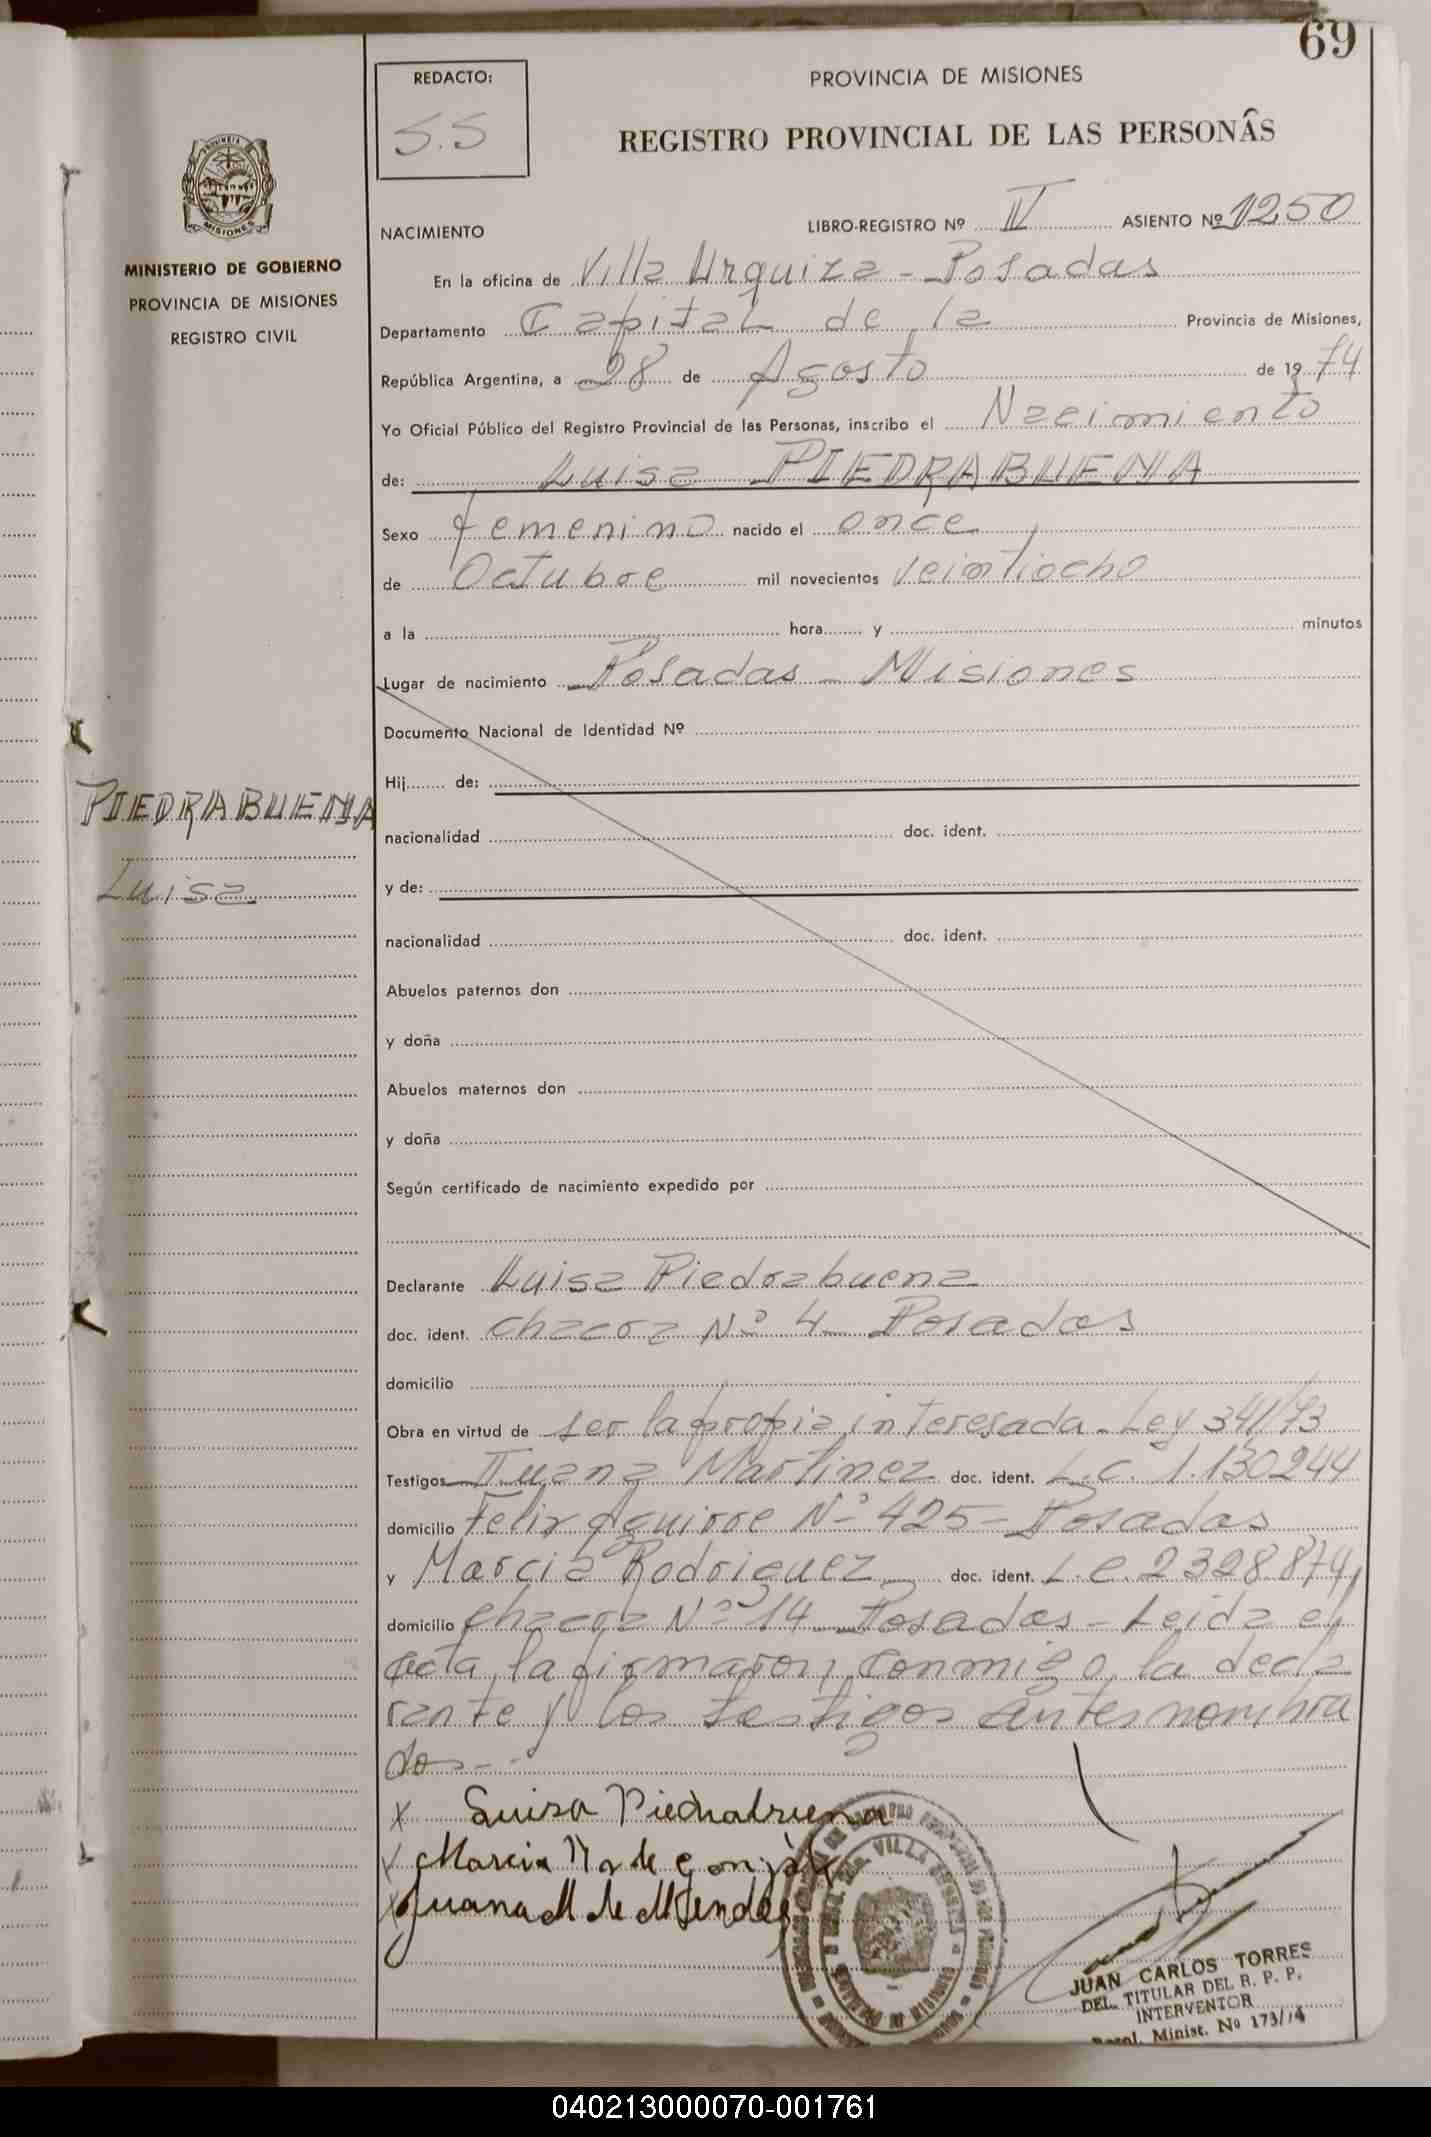 69
REDACTO:
S.S
PROVINCIA DE MISIONES
REGISTRO PROVINCIAL DE LAS PERSONAS
PROVINCIA
MISIONES
MINISTERIO DE GOBIERNO
PROVINCIA DE MISIONES
REGISTRO CIVIL
NACIMIENTO LIBRO-REGISTRO Nº IV ASIENTO Nº 1250
En la oficina de Villa Urquiza - Posadas
Departamento Capital de la Provincia de Misiones,
República Argentina, a 28 de Agosto de 1974
Yo Oficial Público del Registro Provincial de las Personas, inscribo el Nacimiento
de: Luisa PIEDRABUENA
Sexo femenino nacido el once
de Octubre mil novecientos veintiocho
a la hora y minutos
Lugar de nacimiento Posadas - Misiones
Documento Nacional de Identidad Nº
Hij de:
PIEDRABUENA
nacionalidad doc. ident.
Luisa
y de:
nacionalidad doc. ident.
Abuelos paternos don
y doña
Abuelos maternos don
y doña
Según certificado de nacimiento expedido por
Declarante Luisa Piedrabuena
doc. ident. chacra Nº 4 Posadas
domicilio
Obra en virtud de ser la propia interesada - Ley 341/73
Testigos Juana Martinez doc. ident. L.C. 1.130244
domicilio Felix Aguirre Nº 425 - Posadas
y Marcia Rodriguez doc. ident. L.C. 2328.874,
domicilio chacra Nº 14 Posadas - Leida el
acta, la firmaron, conmigo, la decla
rante y los testigos antes nombra
dos -
x Luisa Piedrabuena
x Marcia R de
x Juana M de Mendez
VILLA URQUIZA
PROVINCIA DE MISIONES
JUAN CARLOS TORRES
DEL. TITULAR DEL R. P. P.
INTERVENTOR
Resol. Minist. Nº 173/74
040213000070-001761